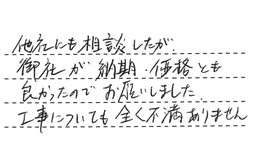 他社にも相談したが、
御社が納期・価格とも
良かったのでお願いしました。
工事についても全く不満ありません